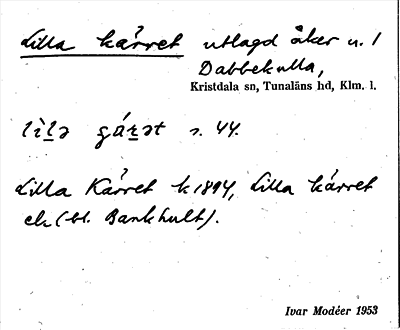 Lilla kärret utlagd åker u. 1
Dabbekulla,
Kristdala sn, Tunaläns hd, Klm. l.
s. 44.
Lilla Kärret k 1894, Lilla kärret
ek (bl. Bankhult).
Ivar Modéer 1953